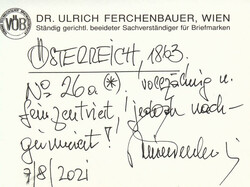 VÖB
DR. ULRICH FERCHENBAUER, WIEN
Ständig gerichtl. beeideter Sachverständiger für Briefmarken
ÖSTERREICH, 1863,
No 26a (*) vollzähnig u.
feinzentriert, jedoch nach-
gummiert!
7/8/2021